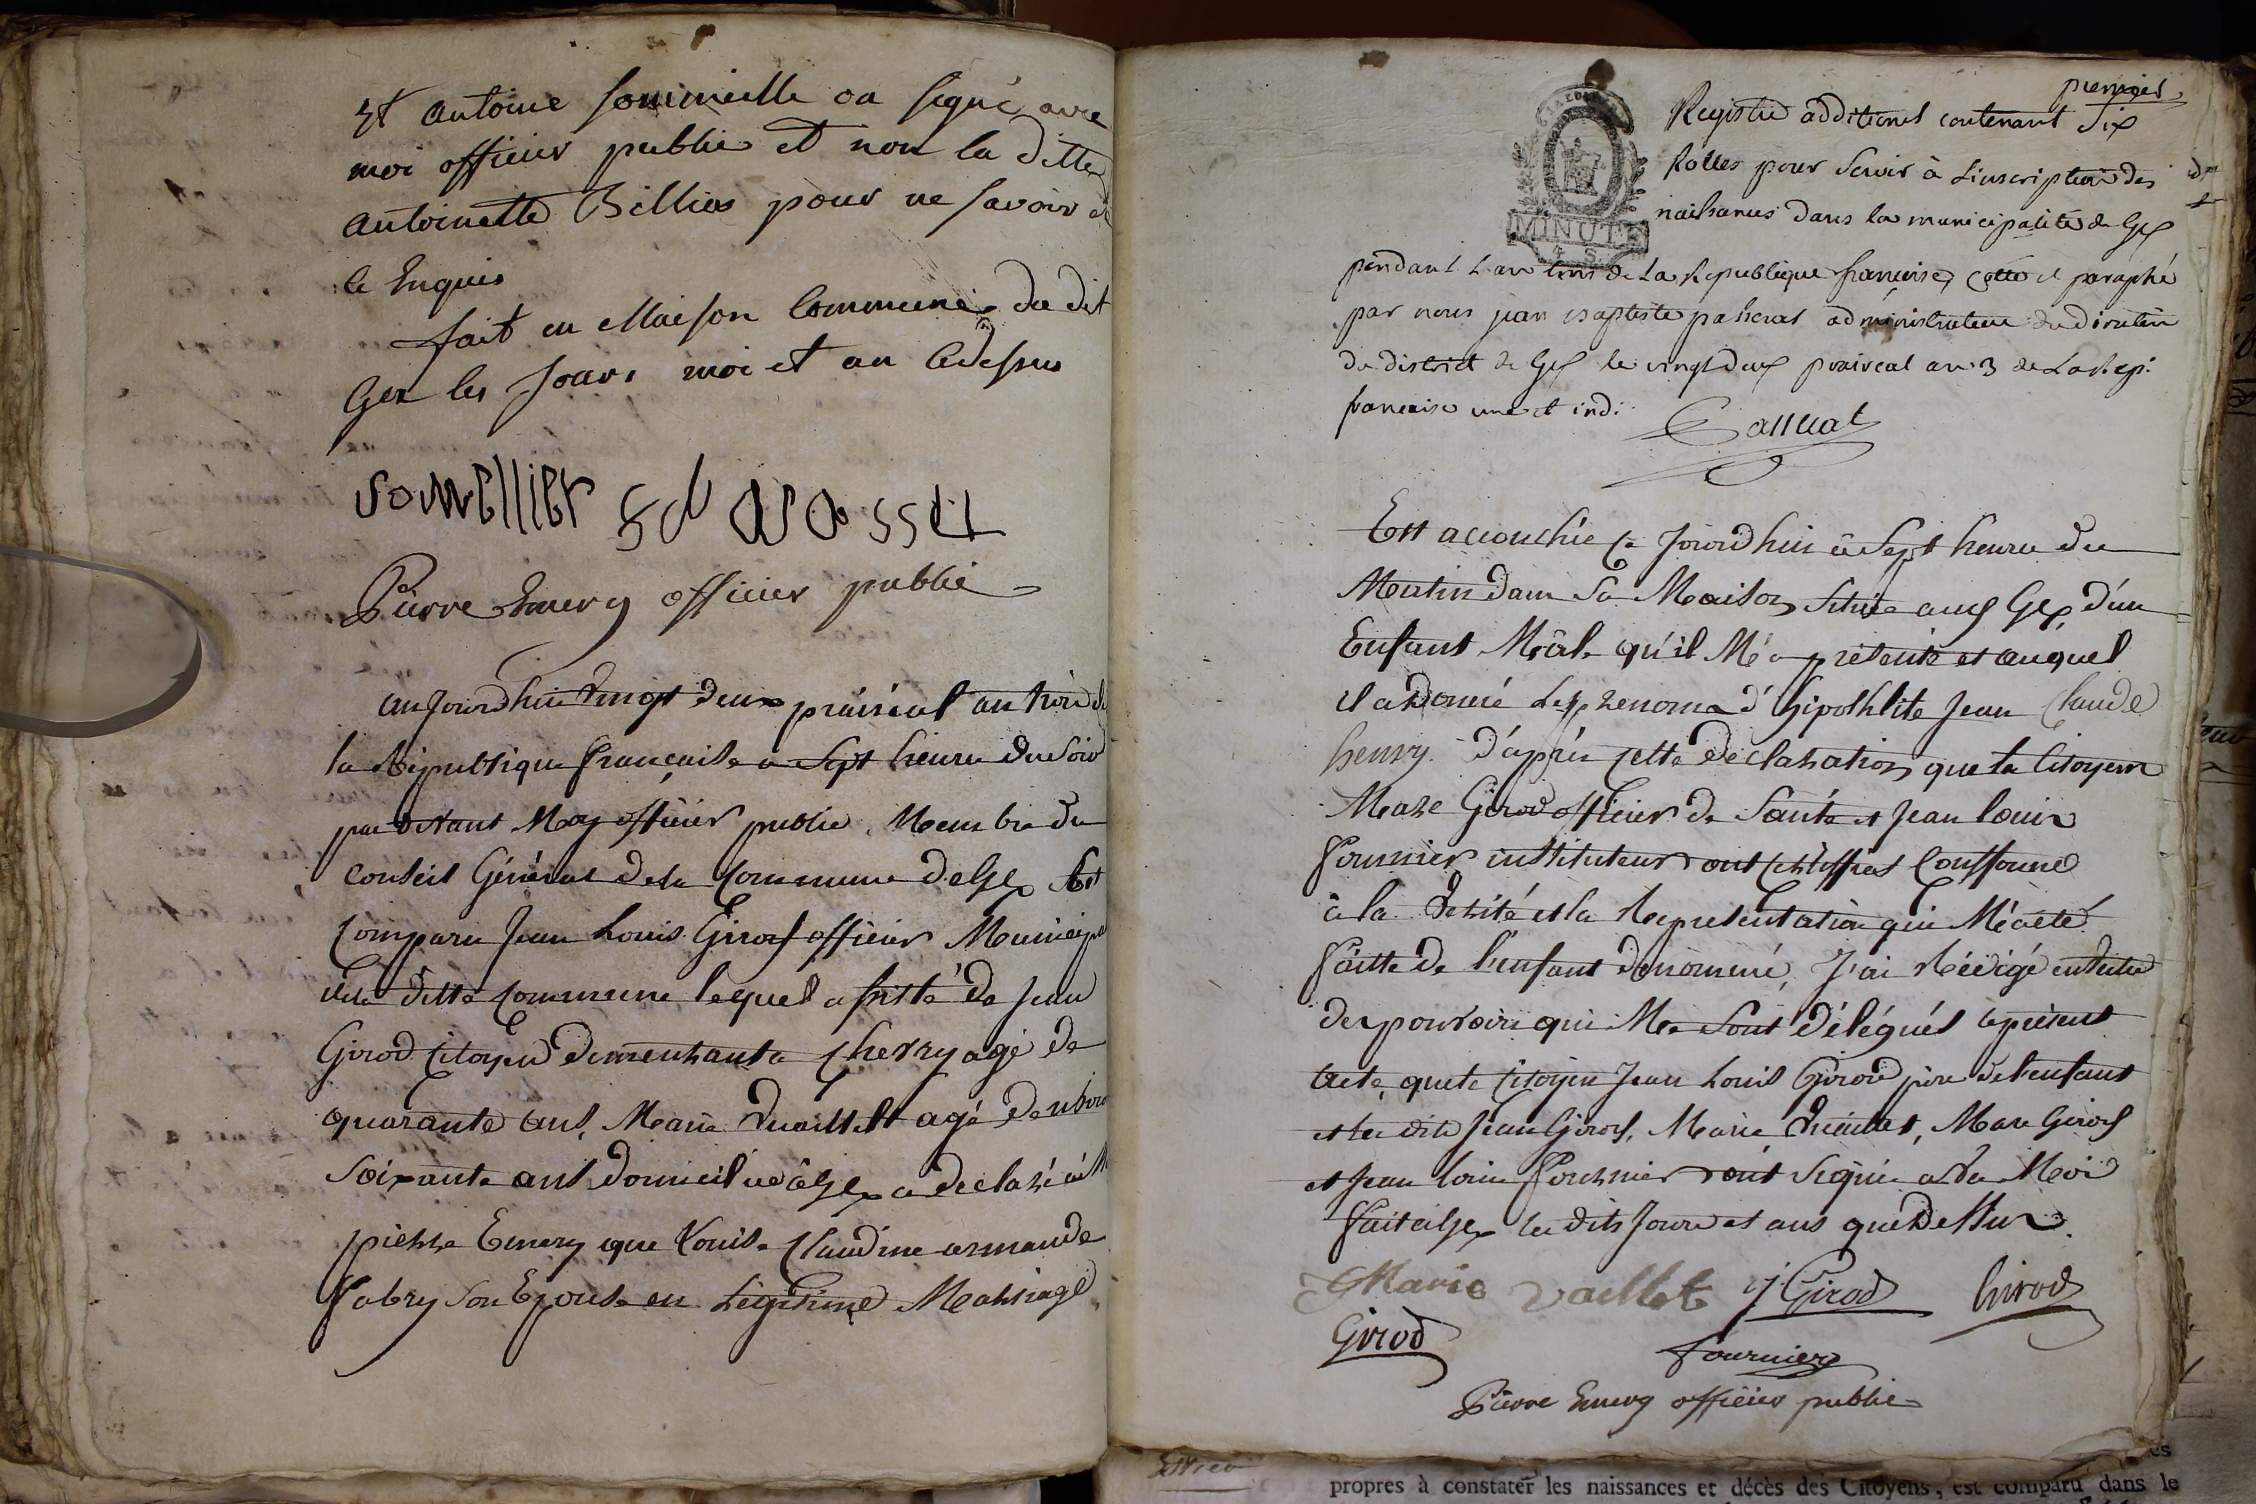 Et antoine sommeille oa signé avec
moi officier public et non la ditte
antoinette Billiex pour ne savoir de
ce Enquis
fait en Maison Commune du dit
Gex les Jours moi et an Cedessus
somellier
Pierre Emery officier public
aujourdhui vingt deux prairéal an trois de
la République française a Sept heure du Soir
par devant Moy officier public Membre du
conseil Général dela Commune de Gex Est
Comparu Jean Louis Girod officier Municipal
de la ditte Commune lequel assisté de Jean
Girod Citoyen demeurant a Chevry agé de
quarante ans, Marie Vuaillet agé denviron
Soixante ans domiciliée à Gex a declaré à M
pierre Emery que Louise Claudine armande
Fabry son Epouse en Légitime Mariage
premier
Registre additionel contenant Six
Rolles pour servir à Linscription des
naissances dans la municipalité de Gex
pendant L'an trois de La Republique francaise, Cotté et paraphé
par nous jean Baptiste passerat administrateur du directoire
du district de Gex le vingt deux prairéal an 3 de La Rep:
francaise une et indi:
Passerat
Est accouchée Ce Jourdhui à Sept heure du
Matin dans Sa Maison Située au Gex, d'un
Enfant Mâle qu'il M'a présenté et auquel
il a Donné Les prenoms d'hipothlite Jean Claude
henry. d'après Cette Déclaration que le Citoyens
Marc Girod officier de Santé et Jean Louis
Fournier instituteur ont Certiffiés Confforme
à la Verité et la Representation qui M'a été
faitte de l'enfant denommé, J'ai Rédigé en Vertu
des pouvoirs qui Me Sont Délégués le présent
acte, que le Citoyen Jean Louis Girod père de l'enfant
et les dits Jean Girod, Marie Vuaillet, Marc Girod
et Jean Louis Fournier ont Signé avec Moi
Fait à Gex les dits Jours et ans que Dessus.
Marie vaillet j. Girod Girod
Girod
fournier
Pierre Emery officier public
MINUTE
4 S.
propres à constater les naissances et décès des Citoyens, est comparu dans le